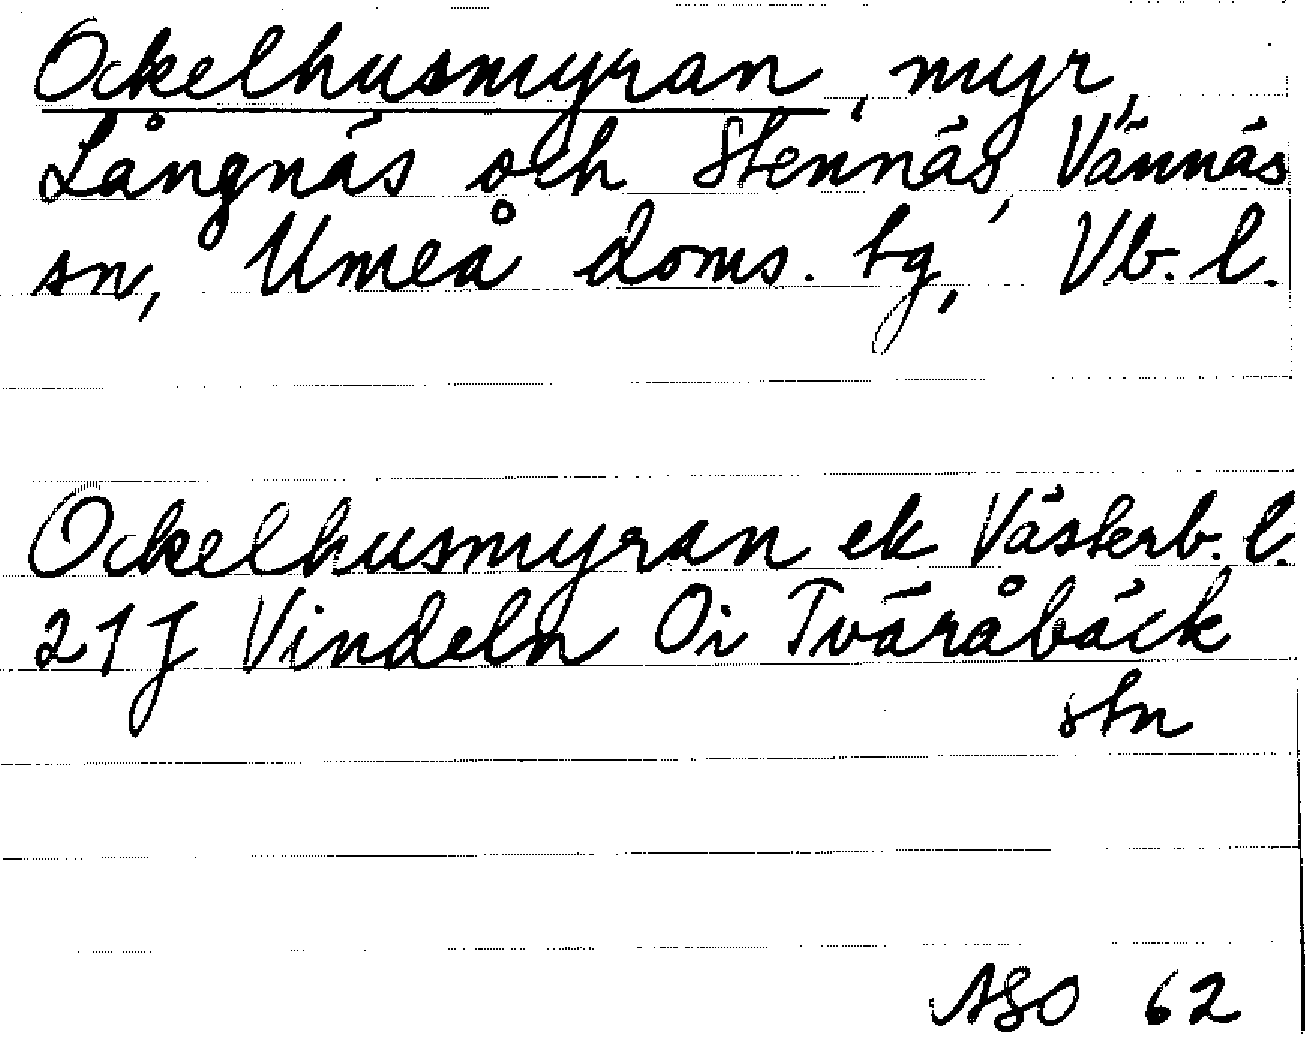 Ockelhusmyran, myr,
Långnäs och Stennäs, Vännäs
sn, Umeå doms. tg, Vb. l.
Ockelhusmyran ek Västerb. l.
21J Vindeln Oi Tväråbäck
stn
ASO 62